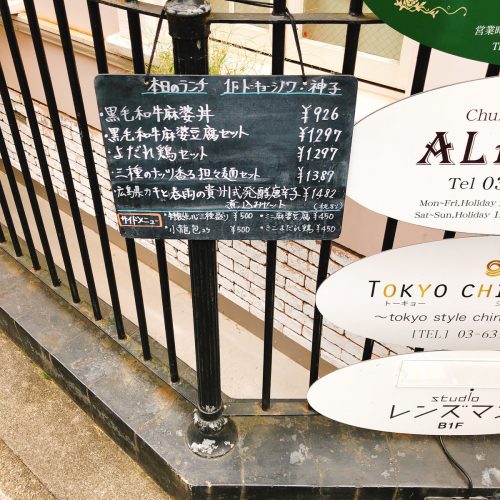 本日のランチ
・黒毛和牛麻婆丼 ¥926
・黒毛和牛麻婆豆腐セット ¥1297
・よだれ鶏セット ¥1297
・三種のナッツ香る担々麺セット ¥1389
・広島県カキと春雨の貴州式発酵唐辛子 ¥1482
煮込みセット (税抜)
サイドメニュー
三種盛り ¥500
・小籠包2コ ¥500
・ミニ麻婆豆腐 ¥450
・ミニよだれ鶏 ¥450
営業時
Chu
Tel 03
Mon-Fri,Holiday
Sat~Sun,Holiday 1
TOKYO CHI
トーキョー
~tokyo style chin
[TEL] 03-63
studio
レンズマン
B1F